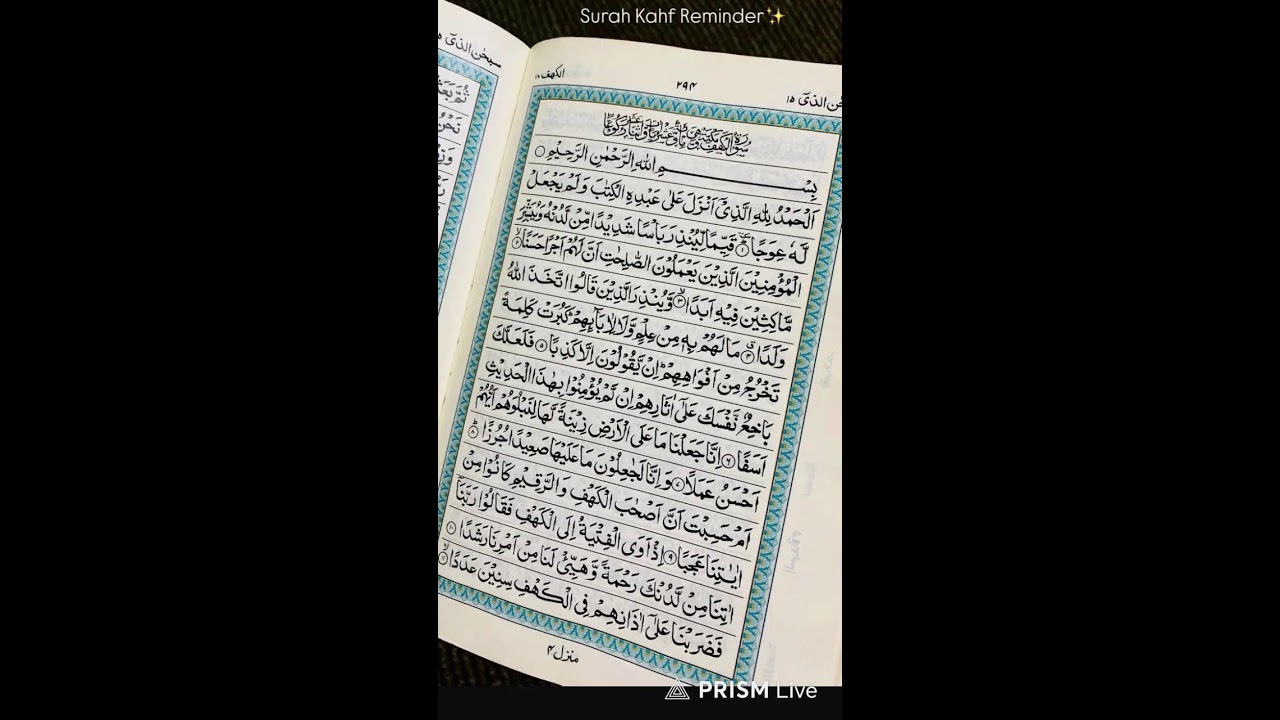 Surah Kahf Reminder✨
سبحٰن الذیٓ ۱۵
الکهف ۱۸
۲۹۴
سبحٰن الذیٓ ۱۵
بِسْمِ اللهِ الرَّحْمٰنِ الرَّحِيْمِ ○
اَلْحَمْدُ لِلّٰهِ الَّذِیْٓ اَنْزَلَ عَلٰى عَبْدِهِ الْكِتٰبَ وَلَمْ يَجْعَلْ
لَّهٗ عِوَجًا ۱ قَيِّمًا لِّيُنْذِرَ بَاْسًا شَدِيْدًا مِّنْ لَّدُنْهُ وَيُبَشِّرَ
الْمُؤْمِنِيْنَ الَّذِيْنَ يَعْمَلُوْنَ الصّٰلِحٰتِ اَنَّ لَهُمْ اَجْرًا حَسَنًا ۲
مَّاكِثِيْنَ فِيْهِ اَبَدًا ۳ وَّيُنْذِرَ الَّذِيْنَ قَالُوا اتَّخَذَ اللهُ
وَلَدًا ۴ مَا لَهُمْ بِهٖ مِنْ عِلْمٍ وَّلَا لِاٰبَآئِهِمْ كَبُرَتْ كَلِمَةً
تَخْرُجُ مِنْ اَفْوَاهِهِمْ اِنْ يَّقُوْلُوْنَ اِلَّا كَذِبًا ۵ فَلَعَلَّكَ
بَاخِعٌ نَّفْسَكَ عَلٰٓى اٰثَارِهِمْ اِنْ لَّمْ يُؤْمِنُوْا بِهٰذَا الْحَدِيْثِ
اَسَفًا ۶ اِنَّا جَعَلْنَا مَا عَلَى الْاَرْضِ زِيْنَةً لَّهَا لِنَبْلُوَهُمْ اَيُّهُمْ
اَحْسَنُ عَمَلًا ۷ وَاِنَّا لَجٰعِلُوْنَ مَا عَلَيْهَا صَعِيْدًا جُرُزًا ۸
اَمْ حَسِبْتَ اَنَّ اَصْحٰبَ الْكَهْفِ وَالرَّقِيْمِ كَانُوْا مِنْ
اٰيٰتِنَا عَجَبًا ۹ اِذْ اَوَى الْفِتْيَةُ اِلَى الْكَهْفِ فَقَالُوْا رَبَّنَآ
اٰتِنَا مِنْ لَّدُنْكَ رَحْمَةً وَّهَيِّئْ لَنَا مِنْ اَمْرِنَا رَشَدًا ۱۰
فَضَرَبْنَا عَلٰٓى اٰذَانِهِمْ فِى الْكَهْفِ سِنِيْنَ عَدَدًا ۱۱
منزل ۴
PRISM Live